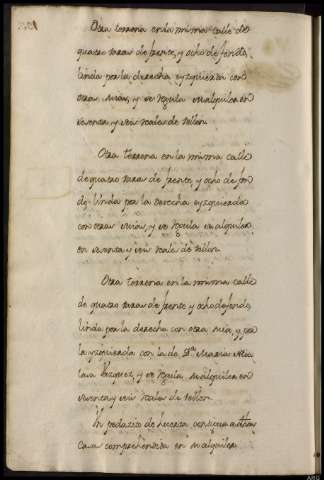 Otra terrena en la misma calle de
quatro varas de frente, y ocho de fondo,
linda por la derecha e yzquierda con
otras mias, y se regula su alquiler en
sesenta y seis reales de vellon.
Otra terrena en la misma calle
de quatro varas de frente, y ocho de fon
do, linda por la derecha e yzquierda
con otras mias, y se regula su alquiler
en sesenta y seis reales de vellon.
Otra terrena en la misma calle
de quatro varas de frente y ocho de fondo,
linda por la derecha con otra mia, y por
la yzquierda con la de Dª Maria
Vazquez, y se regula su alquiler en
sesenta y seis reales de vellon.
Un pedazito de huerta contigua a dha
Casa comprehendida en su alquiler